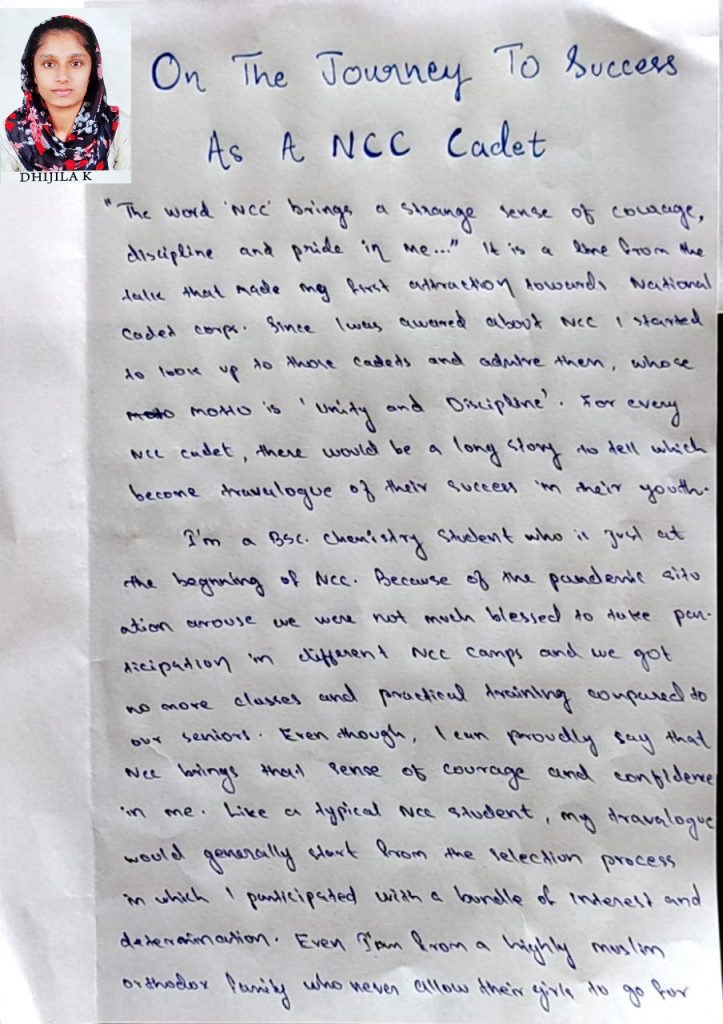 On The Journey To Success
As A NCC Cadet
DHIJILA K
"The word 'NCC' brings a strange sense of courage,
discipline and pride in me..." It is a line from the
talk that made my first attraction towards National
Cadet corps. Since I was awared about NCC I started
to look up to those cadets and admire them, whose
moto motto is 'Unity and Discipline'. For every
NCC cadet, there would be a long story to tell which
become travalogue of their success in their youth.
I'm a BSC. Chemistry student who is just at
the beginning of NCC. Because of the pandemic situ
ation arouse we were not much blessed to take par-
ticipation in different NCC camps and we got
no more classes and practical training compared to
our seniors. Even though, I can proudly say that
NCC brings that sense of courage and confidence
in me. Like a typical NCC student, my travalogue
would generally start from the selection process
in which I participated with a bundle of interest and
determination. Even I'am from a highly muslim
orthodox family who never allow their girls to go for